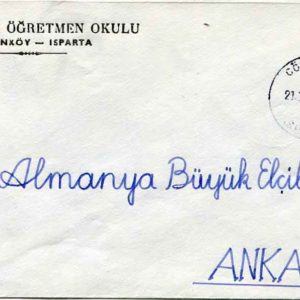 ÖĞRETMEN OKULU
NKÖY — ISPARTA
Almanya Büyük Elçil
ANKA